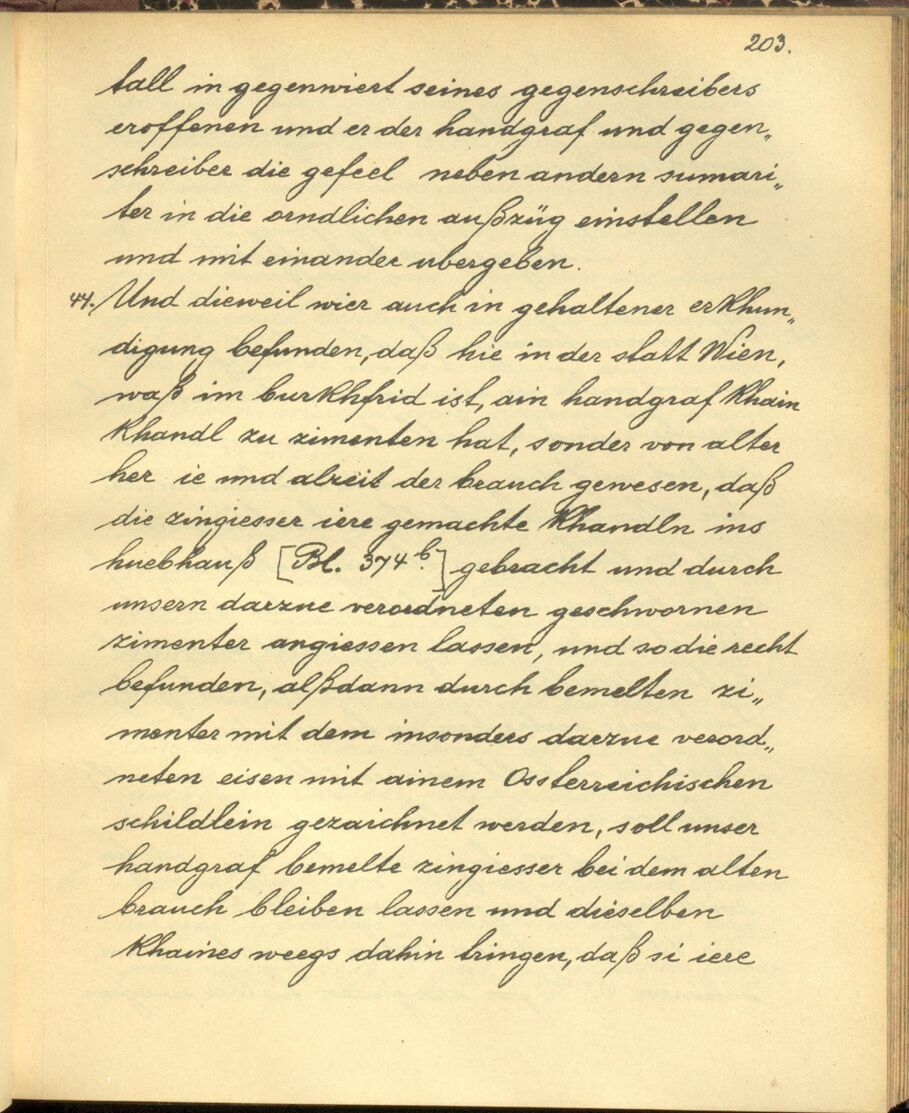 203.
fall in gegenwiert seines gegenschreibers
eroffenen und er der handgraf und gegen„
schreiber die gefeel neben andern sumari„
ter in die orndlichen außzüg einstellen
und mit einander ubergeben.
44. Und dieweil wier auch in gehaltener erkhun„
digung befunden, daß hie in der statt Wien,
waß im burkhfrid ist, ain handgraf khain
khandl zu zimenten hat, sonder von alter
her ie und alzeit der brauch gewesen, daß
die zingiesser iere gemachte khandln ins
huebhauß [Bl. 374 b.] gebracht und durch
unsern darzue verordneten geschwornen
zimenter angiessen lassen, und so die recht
befunden, alßdann durch bemelten zi„
menter mit dem insonders darzue verord„
neten eisen mit ainem Ossterreichischen
schildlein gezaichnet werden, soll unser
handgraf bemelte zingiesser bei dem alten
brauch bleiben lassen und dieselben
khaines weegs dahin tringen, daß si iere